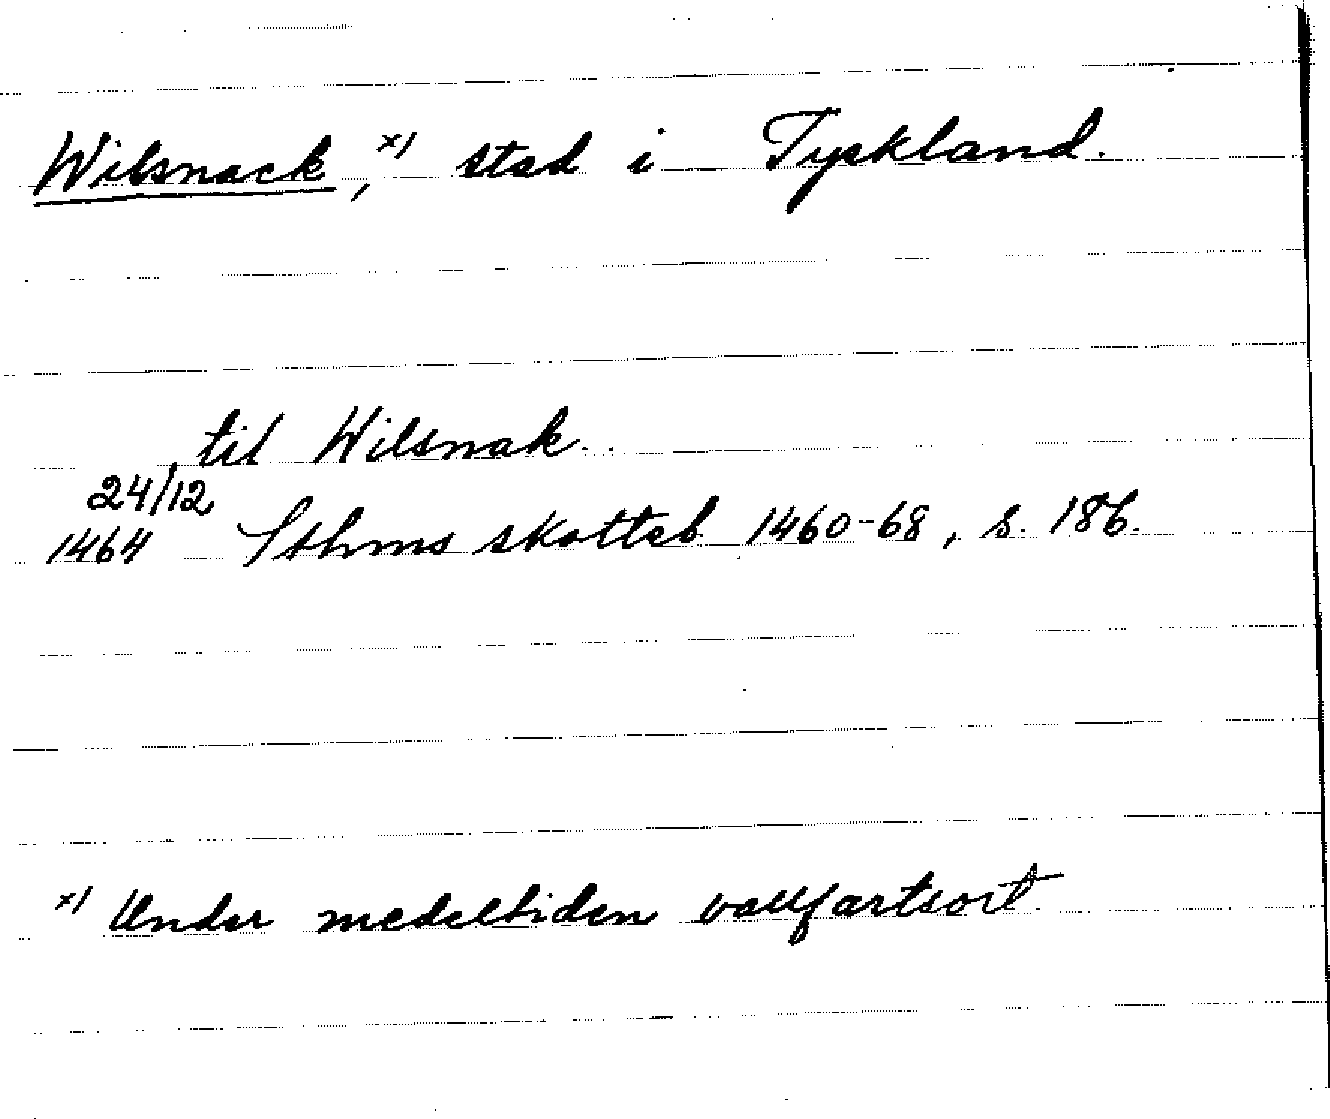 Wilsnack, x) stad i Tyskland.
til Wilsnak.
24/12
1464 Sthms skotteb 1460-68, s. 186.
x) Under medeltiden vallfartsort